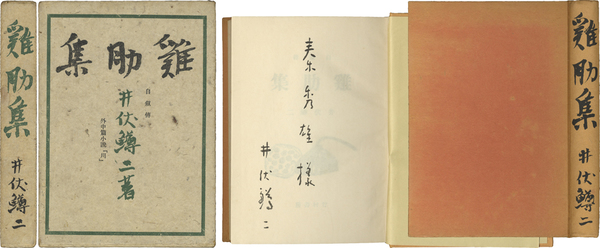 雞肋集
井伏鱒二
雞肋集
自敍傳
外中篇小説「川」
井伏鱒二著
秀雄様
井伏鱒二
雞肋集
井伏鱒二